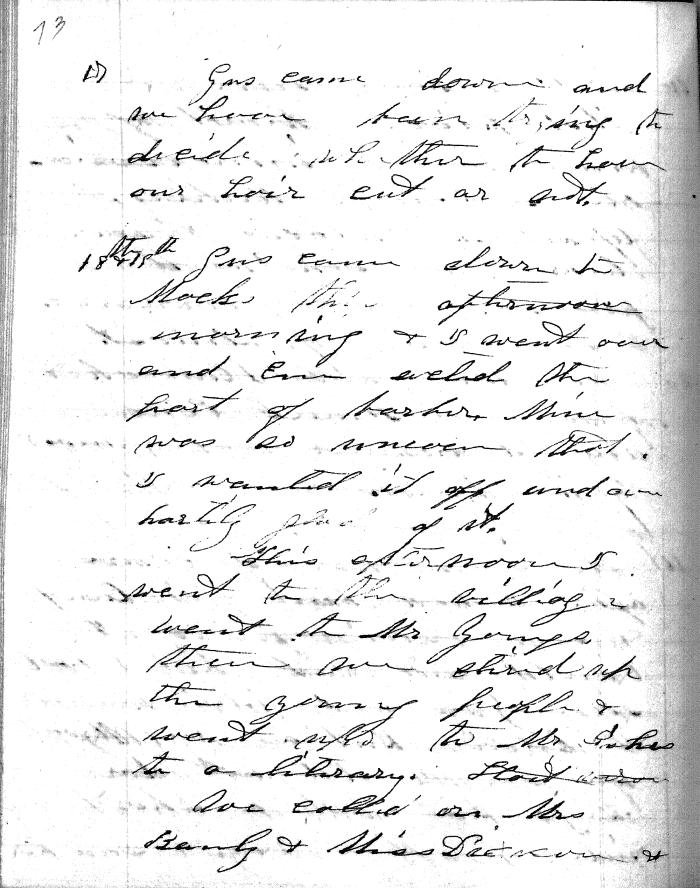 73
17 Gus came down and
we have been trying to
decide whether to have
our hair cut or not.
18th Gus came down to
Macks this afternoon
morning & I went over
and Em acted the
part of barber. Mine
was so uneven that
I wanted it off and am
hartily glad of it.
This afternoon I
went to the village
went to Mr Youngs
then we stired up
the young people &
went up to Mr
to a literary.
We called on Mrs
& Miss &